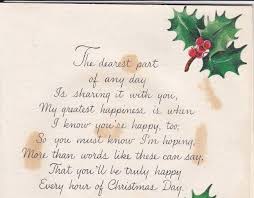 The dearest part
of any day
Is sharing it with you,
My greatest happiness is when
I know you're happy, too;
So you must know I'm hoping,
More than words like these can say,
That you'll be truly happy
Every hour of Christmas Day.